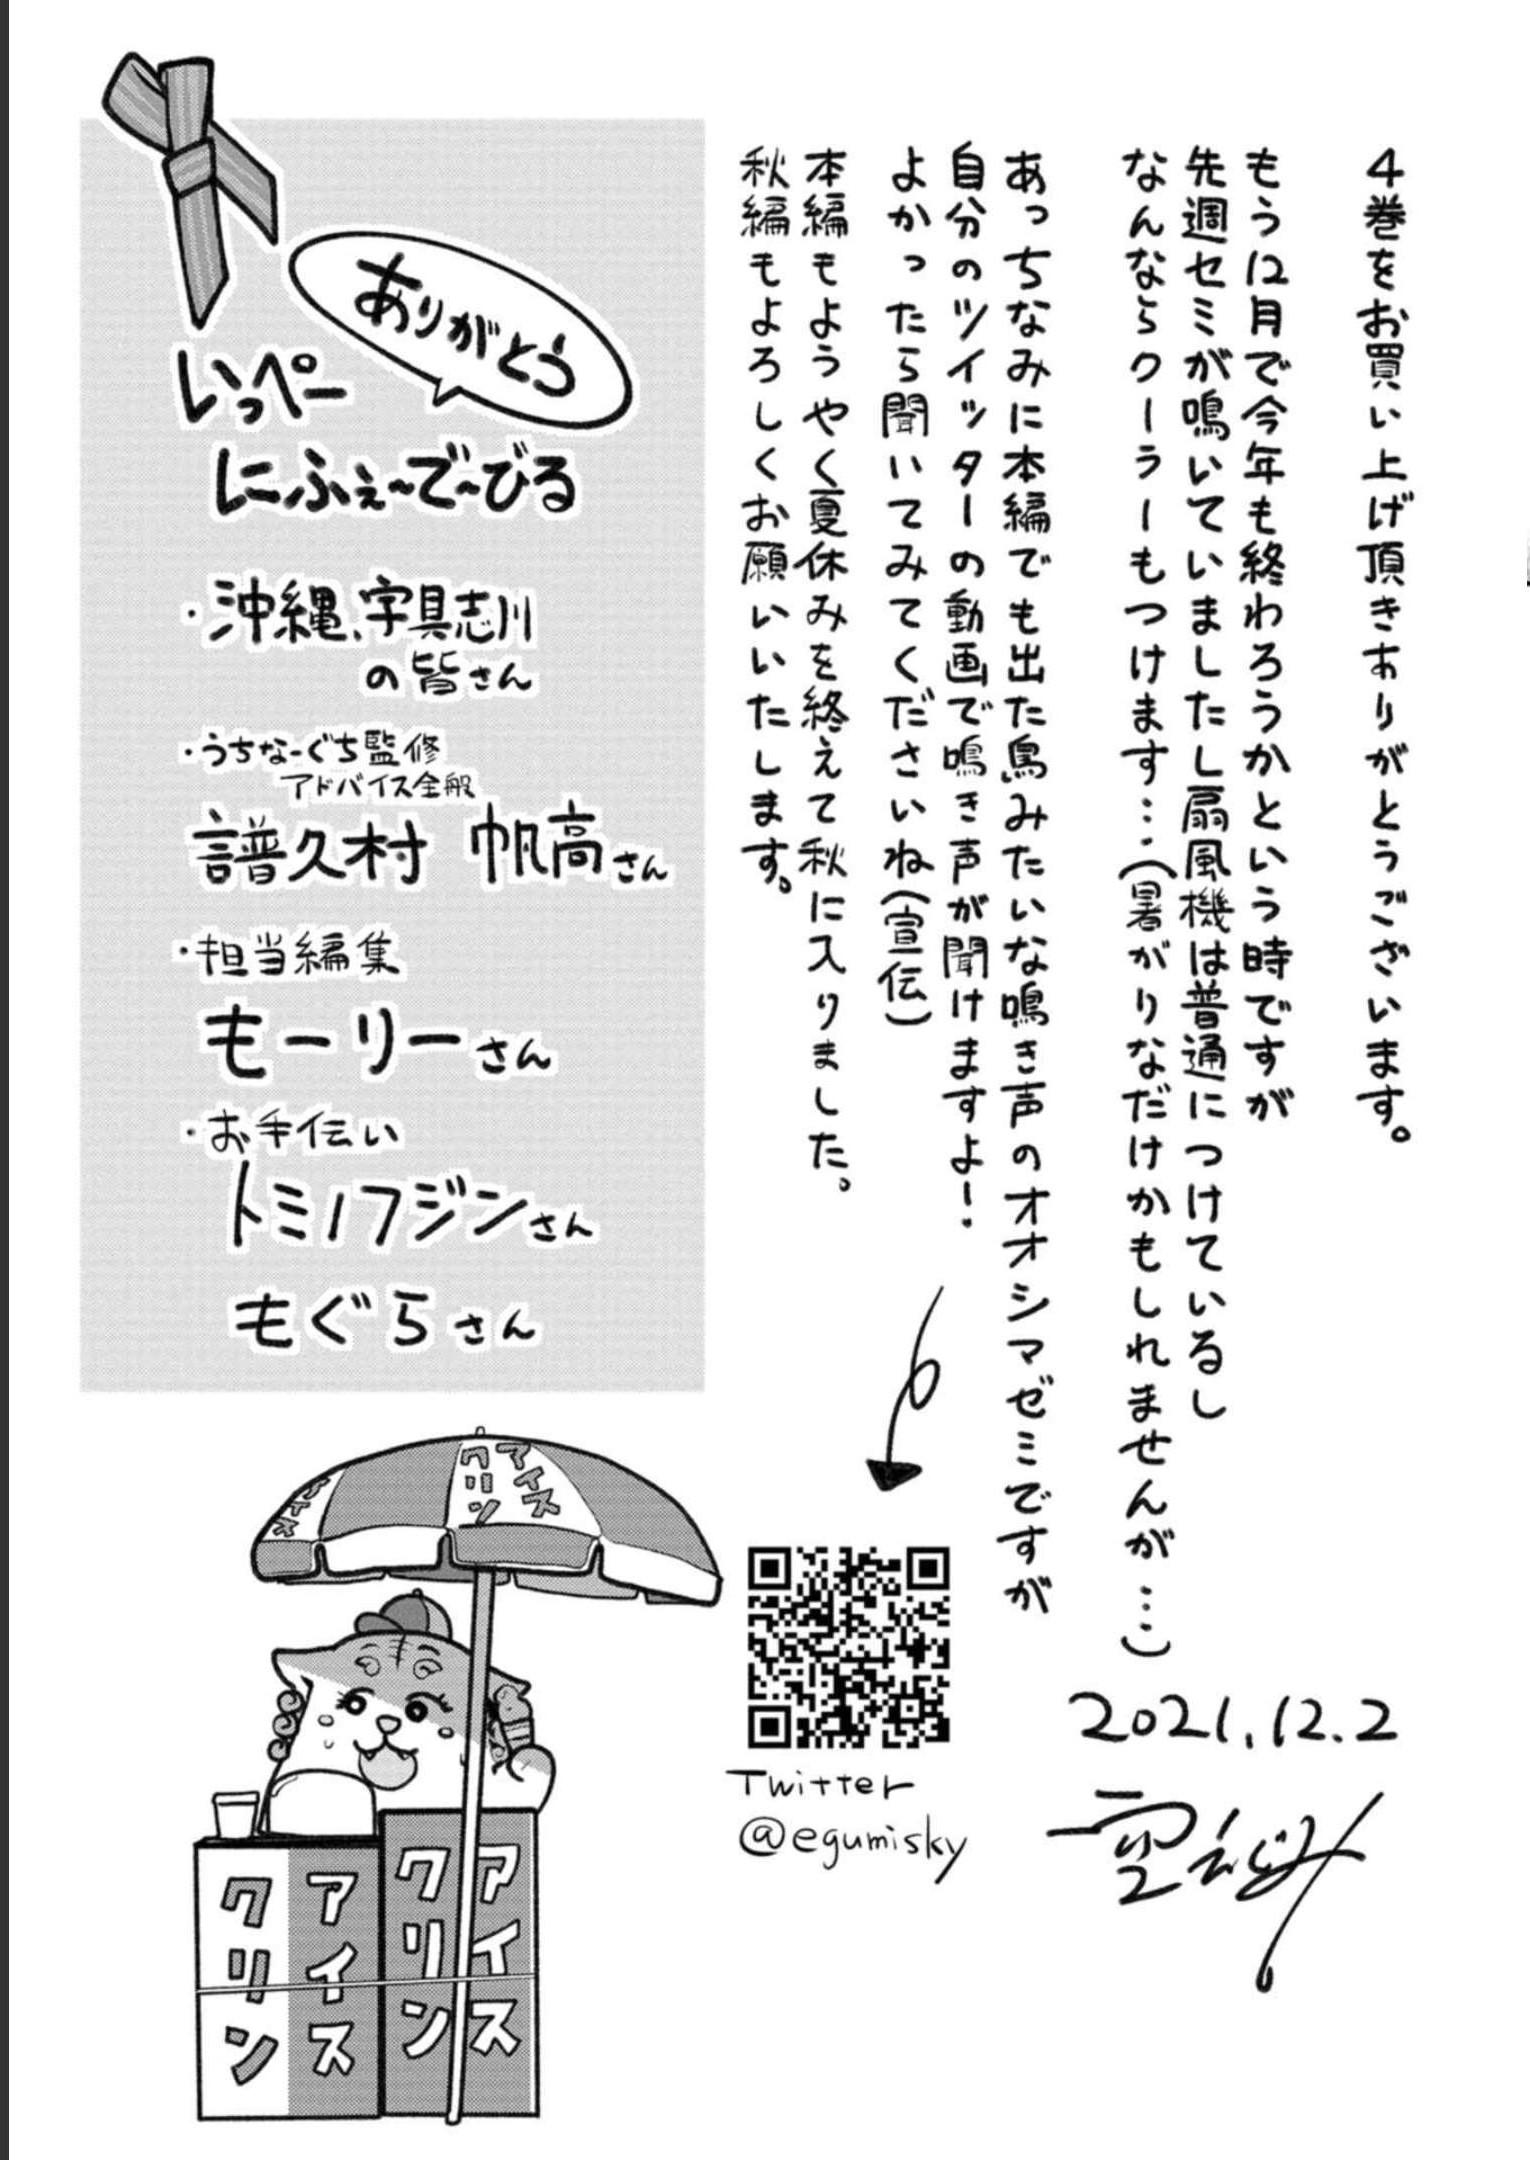 4巻をお買い上げ頂きありがとうございます。
もう12月で今年も終わろうかという時ですが
先週セミが鳴いていましたし扇風機は普通につけているし
なんならクーラーもつけます…(暑がりなだけかもしれませんが…)
あっちなみに本編でも出た鳥みたいな鳴き声のオオシマゼミですが
自分のツイッターの動画で鳴き声が聞けますよー!
よかったら聞いてみてくださいね(宣伝)
本編もようやく夏休みを終えて秋に入りました。
秋編もよろしくお願いいたします。
2021.12.2
空えぐみ
Twitter
@egumisky
ありがとう
いっぺー
にふぇ～で～びる
・沖縄、宇具志川
の皆さん
・うちなーぐち監修
アドバイス全般
譜久村 帆高さん
・担当編集
もーリーさん
・お手伝い
トミノフジンさん
もぐらさん
アイス
クリン
アイス
アイス
クリン
アイス
クリン